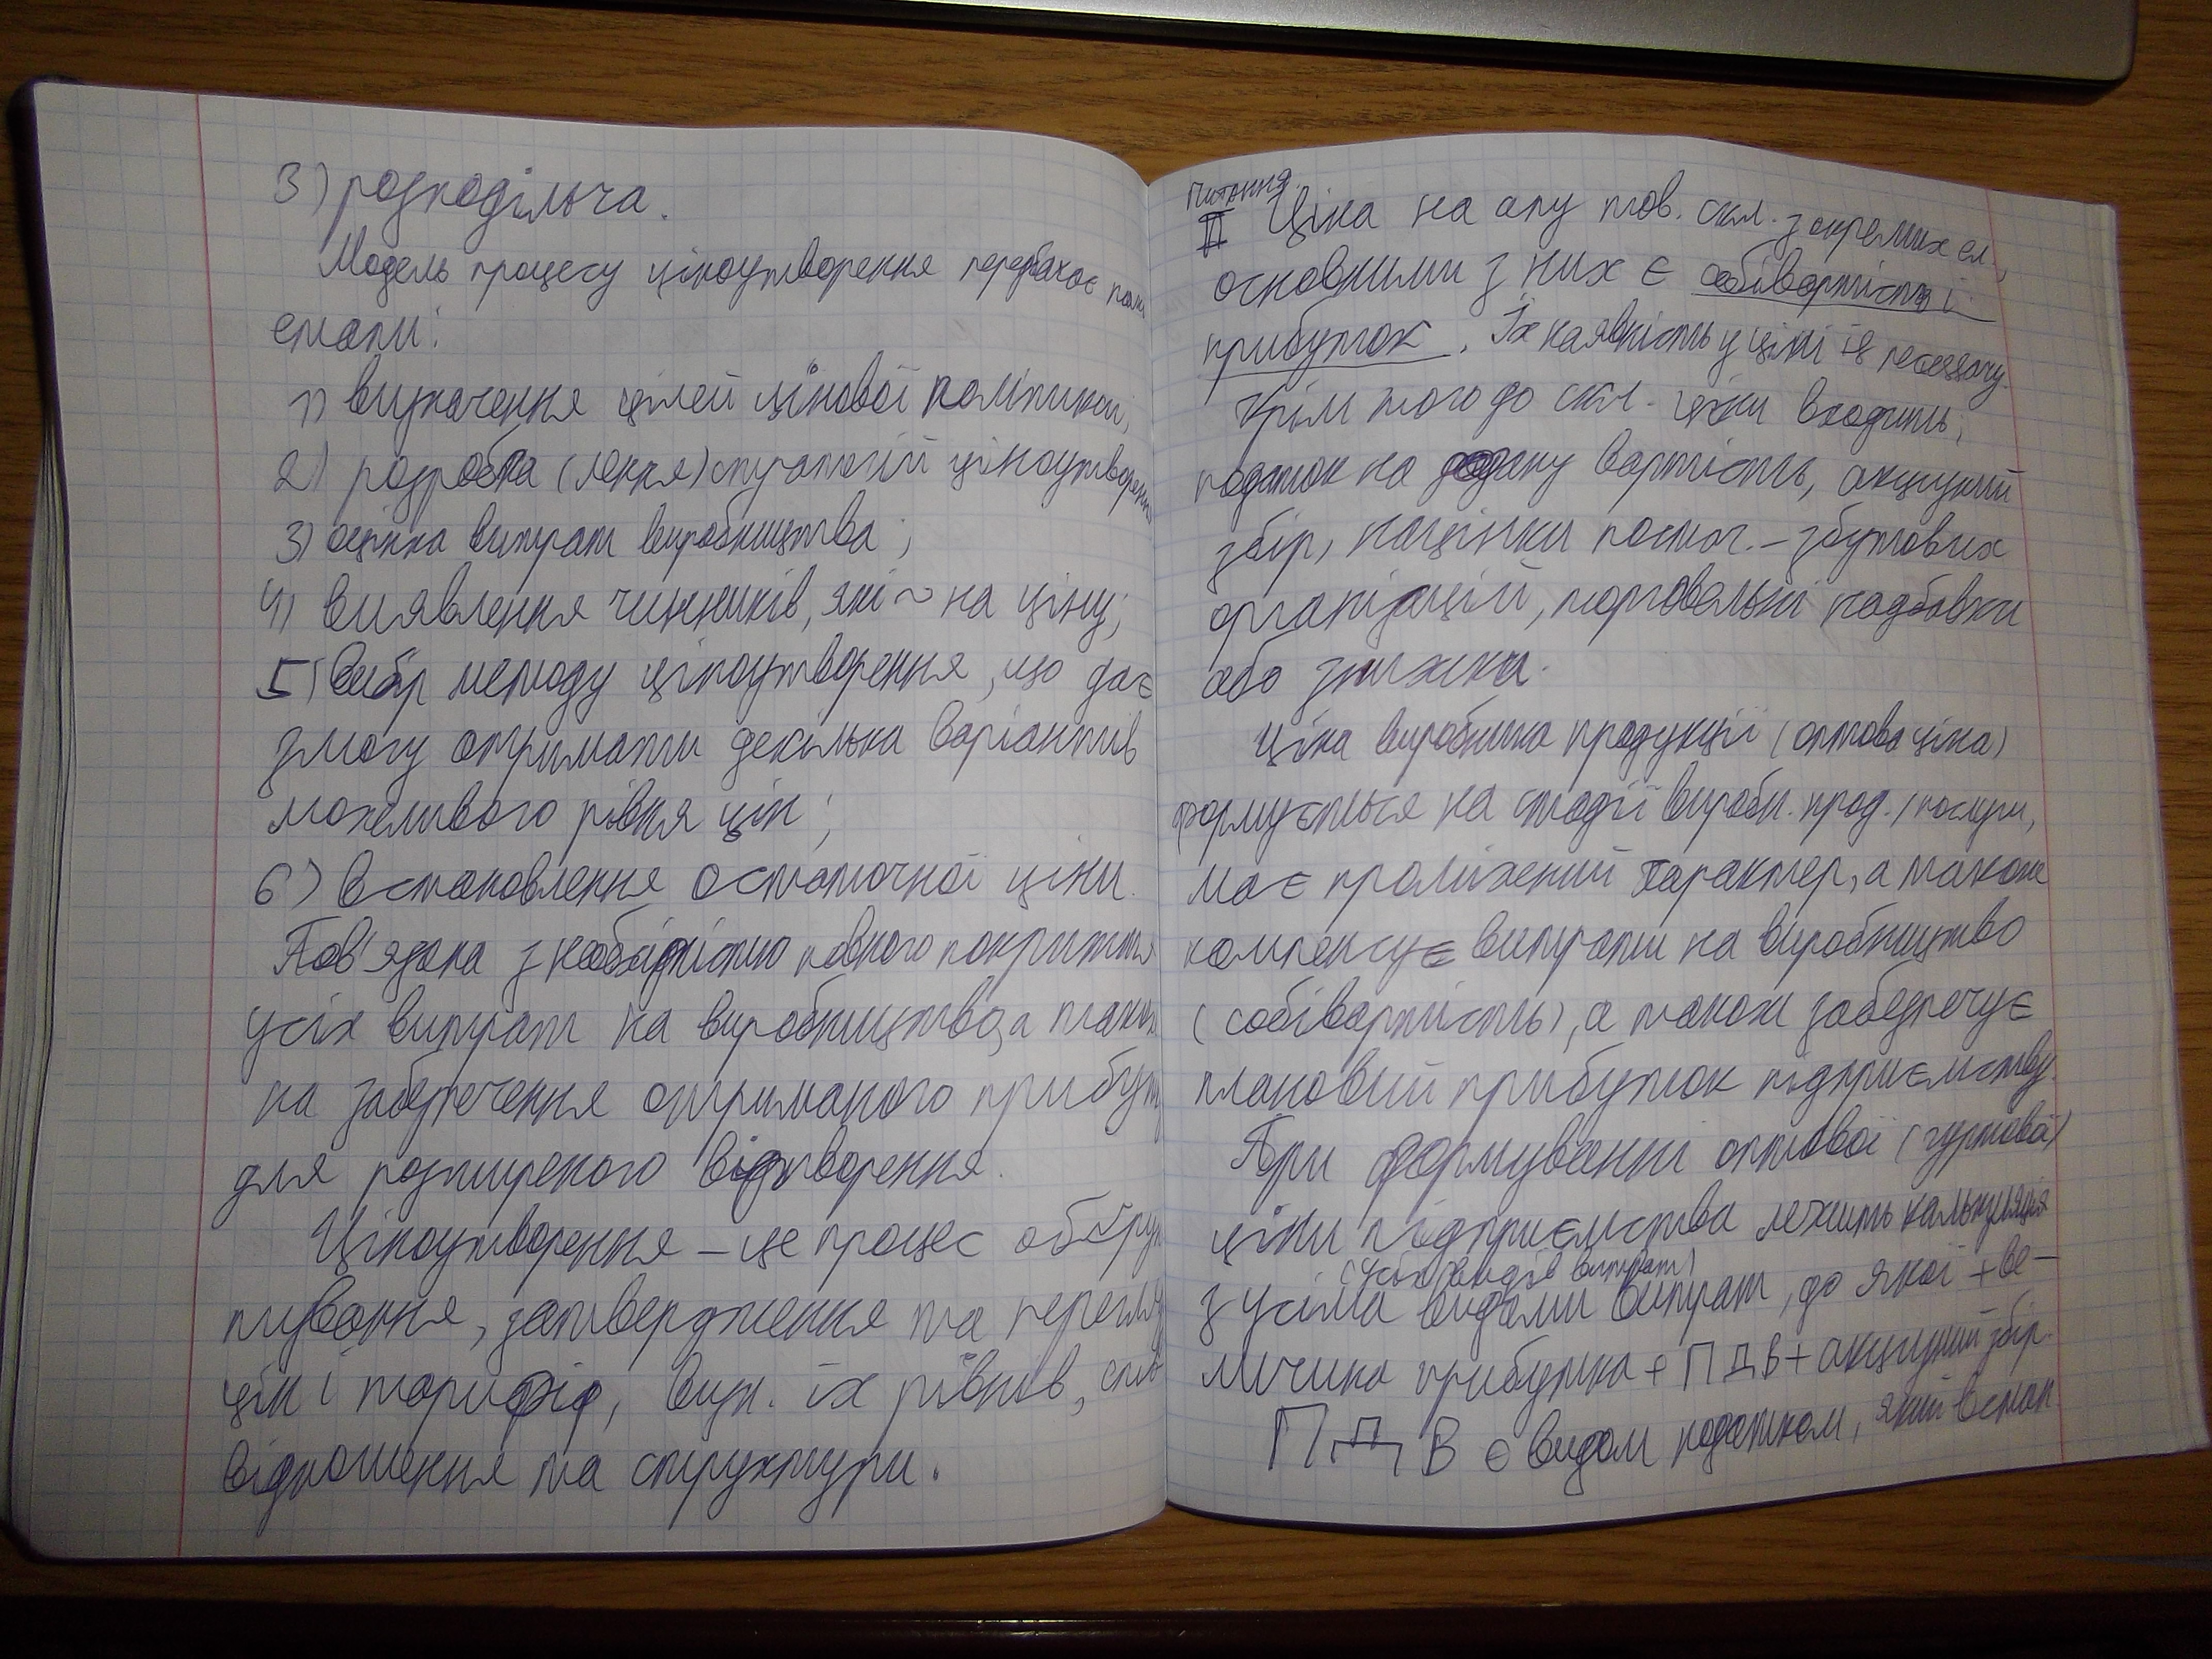 3) розподільча.
Модель процесу ціноутворення передбачає
етапи:
1) визначення цілей цінової політики;
2) розробка (лення) стратегій ціноутворення
3) оцінка витрат виробництва;
4) виявлення чинників, які ~ на ціну;
5) вибір методу ціноутворення, що дає
змогу отримати декілька варіантів
можливого рівня цін;
6) встановлення остаточної ціни.
Пов'язана з необхідністю повного покриття
усіх витрат на виробництво, а також
на забезпечення отриманого прибут
для розширеного відтворення.
Ціноутворення – це процес обґрун
тування, затвердження та перегляду
цін і тарифів, визн. їх рівнів, спів
відношення та структури.
Питання.
II Ціна на опу тов. скл. з окремих ел.,
основними з них є собівартість і
прибуток. Їх наявність у ціні is necessary.
Крім того до скл. ціни входить:
податок на додану вартість, акцизний
збір, націнки постач. – збутових
організацій, торговельні надбавки
або знижки.
Ціна виробника продукції (оптова ціна)
формується на стадії виробн. прод. / послуги,
має проміжний характер, а також
компенсує витрати на виробництво
(собівартість), а також забезпечує
плановий прибуток підприємству.
При формуванні оптової (гуртової)
ціни підприємства лежить калькуляція
(усіх видів витрат)
з усіма видами витрат, до якої + ве–
личина прибутка + ПДВ + акцизний збір.
ПДВ є видом податком, який встан.